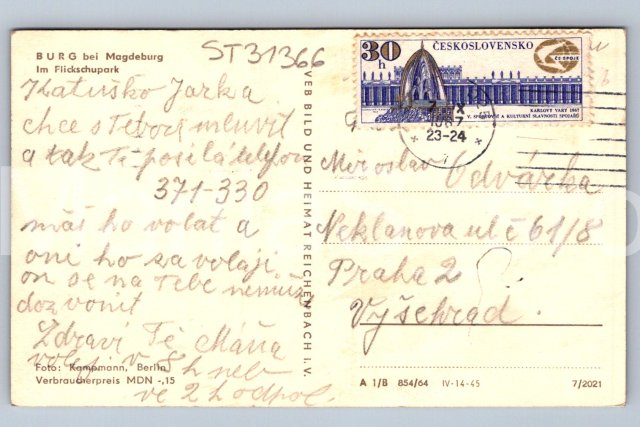 BURG bei Magdeburg
Im Flickschupark
ST31366
Katuško Jarka
chce s Tebou mluvit
a tak Ti posílá telefon
371-330
máš ho volat a
oni ho zavolají
on se na Tebe nemůže
dozvonit
Zdraví Tě Máňa
volej v 8 h neb
ve 2 h odpol.
Foto: Kampmann, Berlin
Verbraucherpreis MDN -,15
VEB BILD UND HEIMAT REICHENBACH I. V.
30 h
ČESKOSLOVENSKO
ČS SPOJE
KARLOVY VARY 1967
V. SPORTOVNÍ A KULTURNÍ SLAVNOSTI SPOJAŘŮ
1967
23-24
Miroslav Odvárka
Neklanova ul č 61/8
Praha 2
Vyšehrad.
A 1/B 854/64 IV-14-45
7/2021